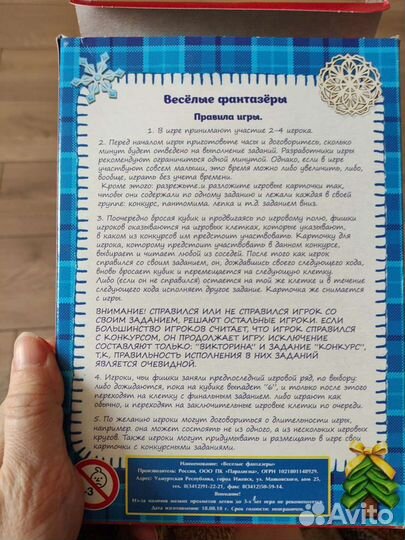 Весёлые фантазёры
Правила игры.
1. В игре принимают участие 2-4 игрока.
2. Перед началом игры приготовьте часы и договоритесь, сколько
минут будет отведено на выполнение заданий. Разработчики игры
рекомендуют ограничиться одной минутой. Однако, если в игре
участвуют совсем малыши, это время можно либо увеличить, либо,
вообще, играть без учета времени.
Кроме этого: разрежьте и разложите игровые карточки так,
чтобы они содержали по одному заданию и лежали каждая в своей
группе: конкурс, пантомима, лепка и т.д. заданием вниз.
3. Поочередно бросая кубик и продвигаясь по игровому полю, фишки
игроков оказываются на игровых клетках, которые указывают,
в каком из конкурсов им предстоит участвовать. Карточку для
игрока, которому предстоит участвовать в данном конкурсе,
выбирает и читает любой из соседей. После того как игрок
справился со своим заданием, он, дождавшись своего следующего хода,
вновь бросает кубик и перемещается на следующую клетку.
Либо (если он не справился) остается на той же клетке и в течение
следующего хода исполняет другое задание. Карточка же снимается
с игры.
ВНИМАНИЕ! СПРАВИЛСЯ ИЛИ НЕ СПРАВИЛСЯ ИГРОК СО
СВОИМ ЗАДАНИЕМ, РЕШАЮТ ОСТАЛЬНЫЕ ИГРОКИ. ЕСЛИ
БОЛЬШИНСТВО ИГРОКОВ СЧИТАЕТ, ЧТО ИГРОК СПРАВИЛСЯ
С КОНКУРСОМ, ОН ПРОДОЛЖАЕТ ИГРУ. ИСКЛЮЧЕНИЕ
СОСТАВЛЯЮТ ТОЛЬКО: "ВИКТОРИНА" И ЗАДАНИЕ "КОНКУРС",
Т.К. ПРАВИЛЬНОСТЬ ИСПОЛНЕНИЯ В НИХ ЗАДАНИЙ
ЯВЛЯЕТСЯ ОЧЕВИДНОЙ.
4. Игроки, чьи фишки заняли предпоследний игровой ряд, по выбору:
либо дожидаются, пока на кубике выпадет "6", и только после этого
переходят на клетку с финальным заданием. либо играют как
обычно, и переходят на заключительные игровые клетки по очереди.
5. По желанию игроки могут договориться о длительности игры,
например, она может состоять не из одного, а из нескольких игровых
кругов. Также игроки могут придумывать и размещать в игре свои
карточки с конкурсными заданиями.
Наименование: «Веселые фантазеры»
Производитель: Россия, ООО ПК «Паралигма», ОГРН 1021801148929.
Адрес: Удмуртская Республика, город Ижевск, ул. Маяковского, дом 25,
тел. 8(3412)91-22-21, факс: 8(3412)50-59-14.
Внимание!
Из-за наличия мелких предметов детям до 3-х лет игра не рекомендуется.
Дата изготовления: 10.08.18 г. Срок годности: неограничен.
0-3
Avito